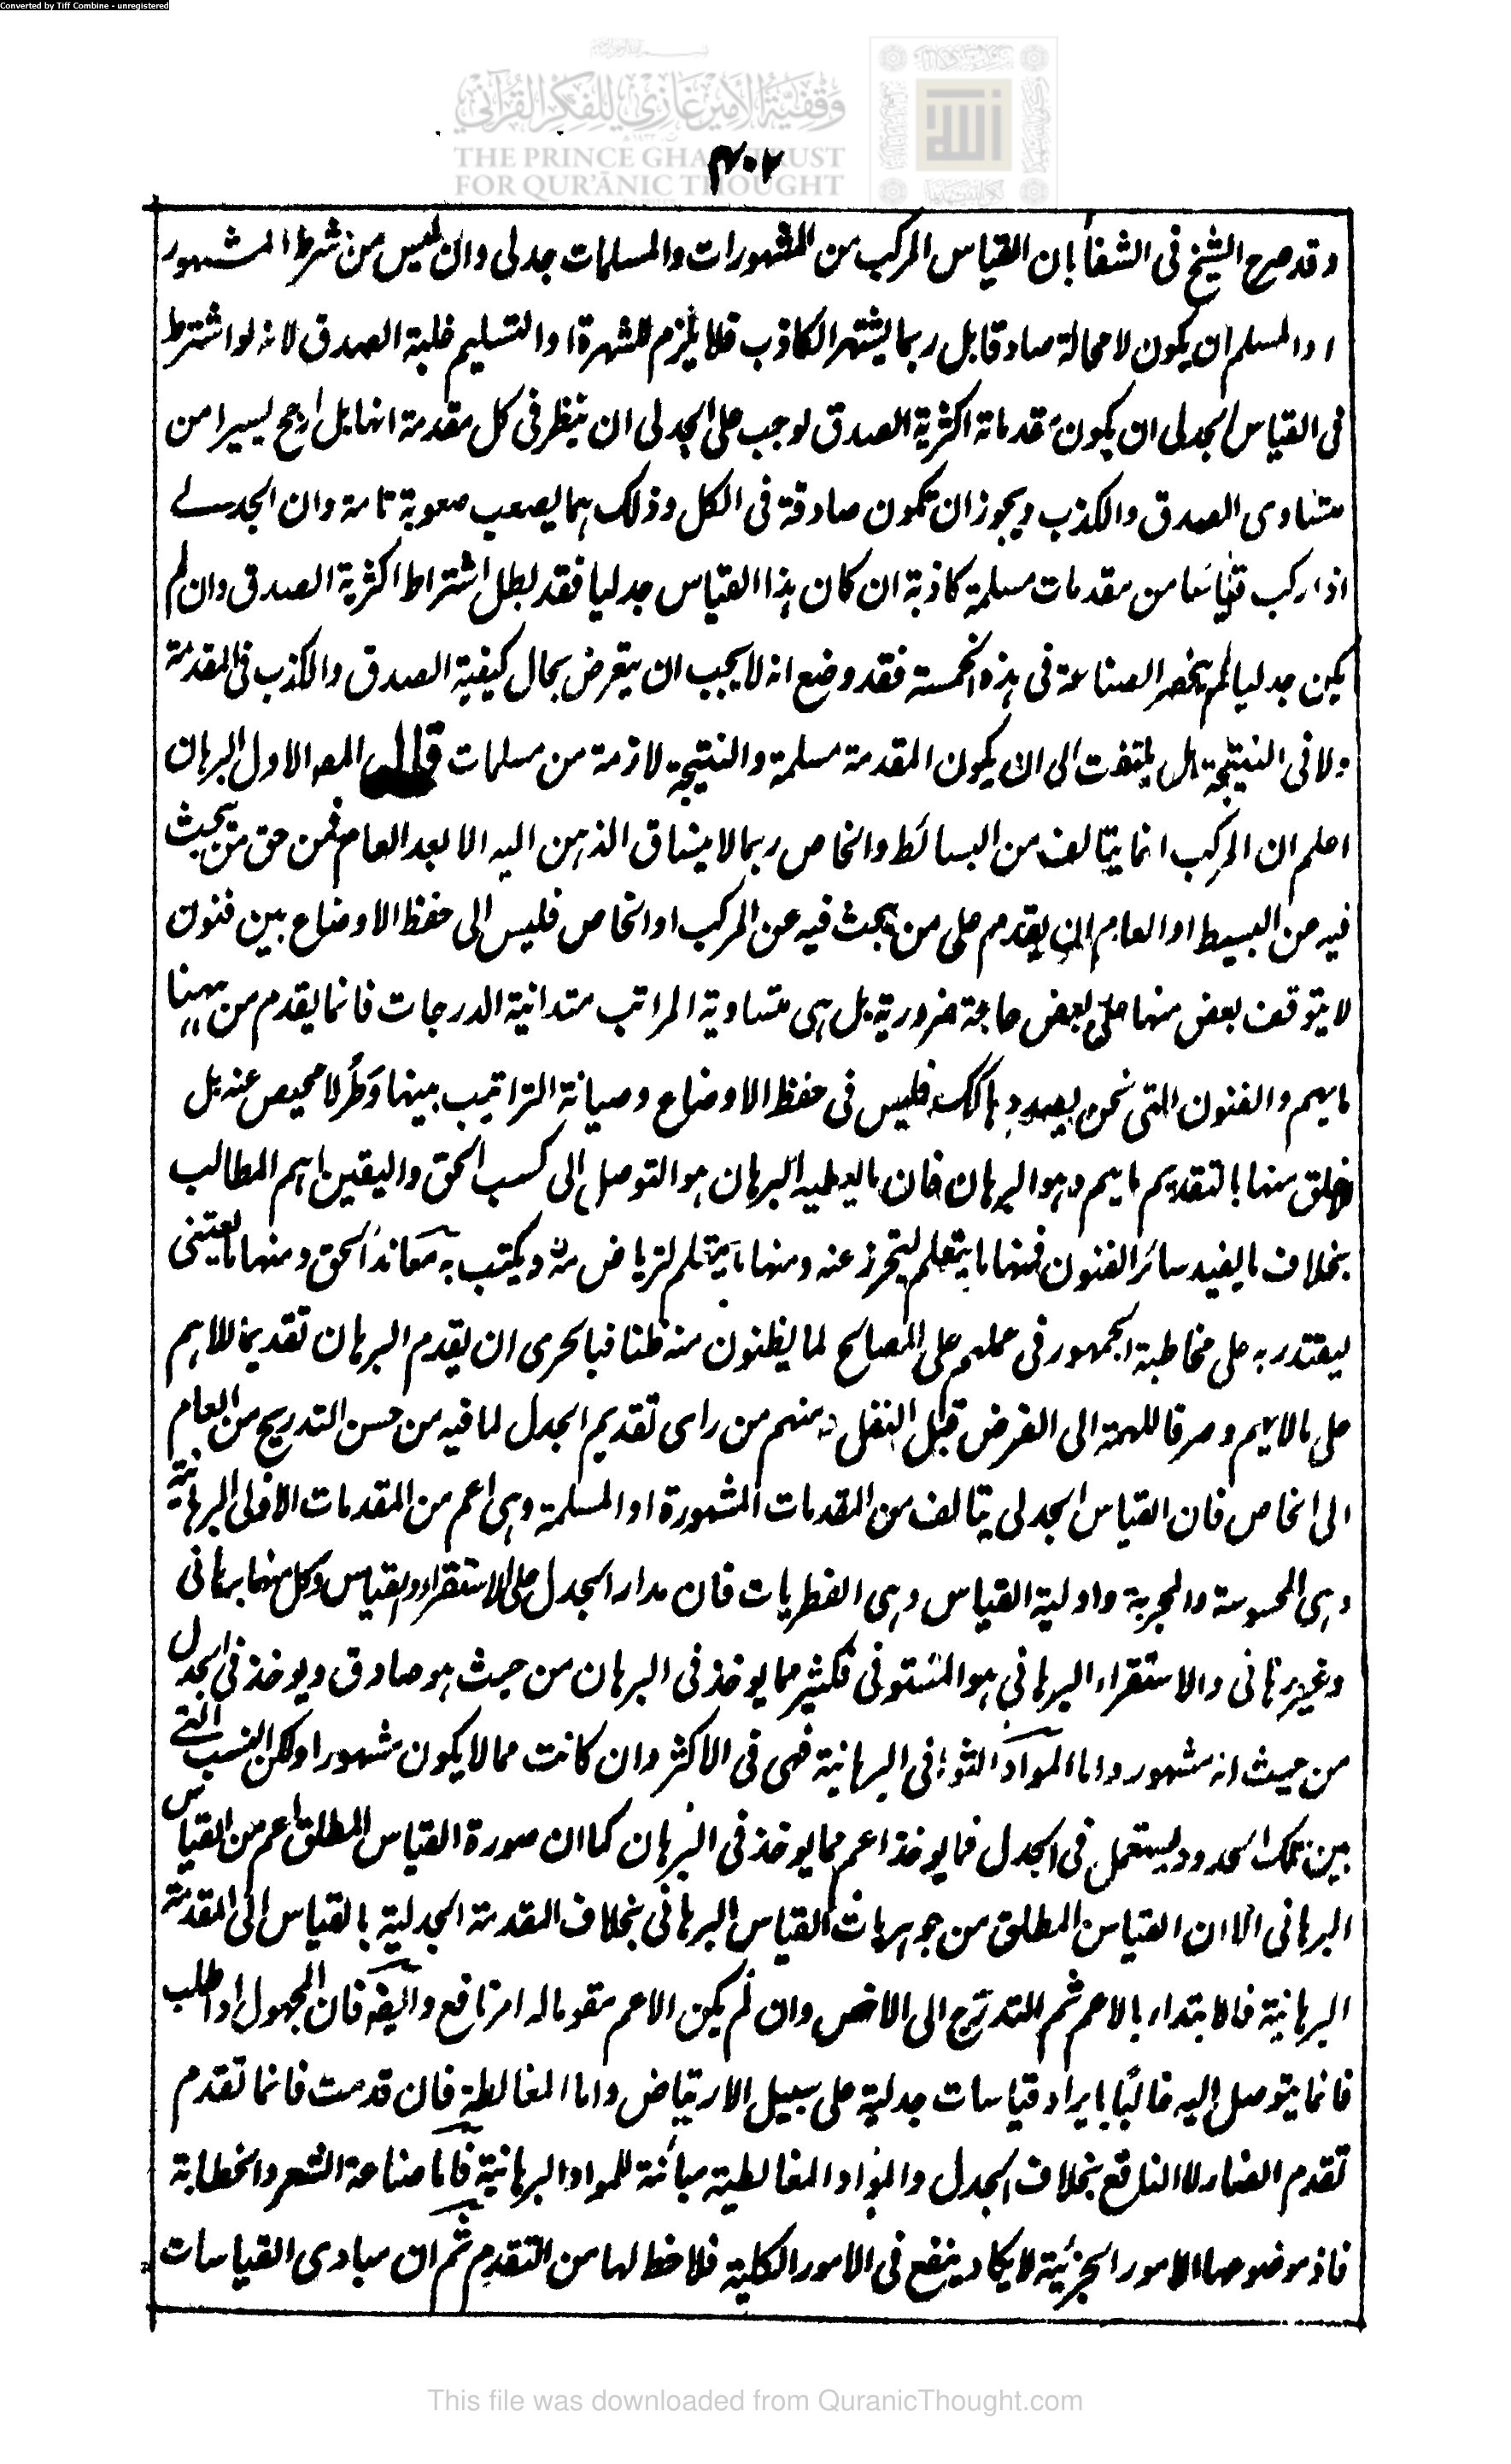 Converted by Tiff Combine - unregistered
وقفية الأمير غازي للفكر القرآني
THE PRINCE GHAZI TRUST
FOR QUR'ĀNIC THOUGHT
٤٠٢
وقد صرح الشيخ فى الشفا بان القياس المركب من المشهورات والمسلمات جدلى وان ليس من شرط المشهور
او المسلم ان يكون لا محالة صادقا بل ربما يشتهر الكاذب فلا يلزم للشهرة او التسليم غلبة الصدق لانه لو اشترط
فى القياس الجدلى ان يكون مقدماته اكثرية الصدق لوجب على الجدلى ان ينظر فى كل مقدمة انها بل ارجح يسيرا من
متساوى الصدق والكذب ويجوز ان تكون صادقة فى الكل وذلك مما يصعب صعوبة تامة وان الجدلے
اذا ركب قياسا من مقدمات مسلمة كاذبة ان كان هذا القياس جدليا فقد بطل اشتراط اكثرية الصدق وان لم
يكن جدليا لم ينحصر الصناعة فى هذه الخمسة فقد وضع انه لا يجب ان يتعرض بحال كيفية الصدق والكذب فى المقدمة
ولا فى النتيجة بل يلتفت الى ان يكون المقدمة مسلمة والنتيجة لازمة من مسلمات قال المصـ الاول البرهان
اعلم ان المركب انما يتالف من البسائط والخاص ربما لا ينساق الذهن اليه الا بعد العام فمن حق من يبحث
فيه عن البسيط او العام ان يقدم على من يبحث فيه عن المركب او الخاص فليس الى حفظ الاوضاع بين فنون
لا يتوقف بعض منها على بعض حاجة ضرورية بل هى متساوية المراتب متدانية الدرجات فانما يقدم من بينها
ما يهم والفنون التى نحن بصددها كك فليس فى حفظ الاوضاع وصيانة التراتيب بينها وَطَرٌ لا محيص عنه بل
خلق منها بالتقديم ما يهم وهو البرهان فان ما يعطيه البرهان هو التوصل الى كسب الحق واليقين اهم المطالب
بخلاف ما يفيد سائر الفنون فمنها ما يتعلم ليتحرز عنه ومنها ما يتعلم ليرتاض به ويكتب به معاند الحق ومنها ما يعتنى
ليقتدر به على مخاطبة الجمهور فى حملهم على المصالح لما يظنون منه ظنا فبالحرى ان يقدم البرهان تقديما للاهم
على ما لا يهم وصرفا للهمة الى الفرض قبل النفل ومنهم من راى تقديم الجدل لما فيه من حسن التدريج من العام
الى الخاص فان القياس الجدلى يتالف من المقدمات المشهورة او المسلمة وهى اعم من المقدمات الاولى البرهانية
وهى المحسوسة والمجربة واولية القياس وهى الفطريات فان مدار الجدل على الاستقراء والقياس وكل منهما برهانى
وغير برهانى والاستقراء البرهانى هو المستوفى فكثير مما يوخذ فى البرهان من حيث هو صادق ويوخذ فى الجدل
من حيث انه مشهور واما المواد الثوانى البرهانية فهى فى الاكثر وان كانت مما لا يكون مشهورا ولكن النسب التے
بين تلك الحدود يستعمل فى الجدل فما يوخذ اعم مما يوخذ فى البرهان كما ان صورة القياس المطلق اعم من القياس
البرهانى الا ان القياس المطلق من جوهريات القياس البرهانى بخلاف المقدمة الجدلية بالقياس الى المقدمة
البرهانية فالابتداء بالاعم ثم التدرج الى الاخص وان لم يكن الاعم مقوما له امر نافع وايضا فان المجهول اذا طلب
فانما يتوصل اليه غالبا بايراد قياسات جدلية على سبيل الارتياض واما المغالطة فان قدمت فانما تقدم
تقدم الضار لا النافع بخلاف الجدل والمواد المغالطية مبائنة للمواد البرهانية فاما صناعة الشعر والخطابة
فاذ موضوعها الامور الجزئية لا يكاد ينفع فى الامور الكلية فلا حظ لها من التقدم ثم ان مبادى القياسات
This file was downloaded from QuranicThought.com